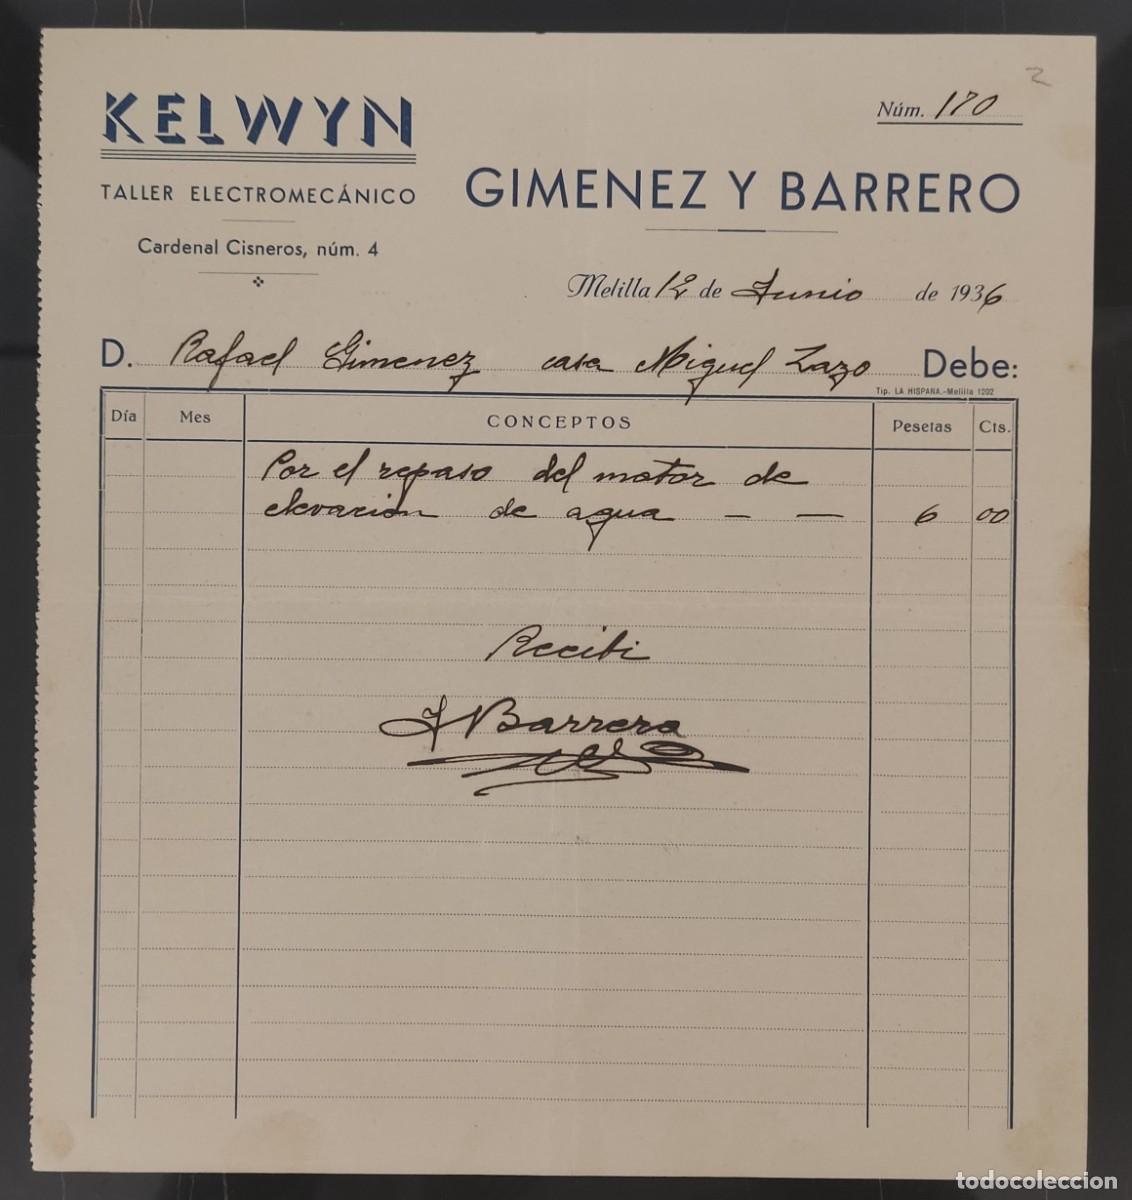 2
KELWYN
TALLER ELECTROMECÁNICO
Cardenal Cisneros, núm. 4
Núm. 170
GIMENEZ Y BARRERO
Melilla 12 de Junio de 1936
D. Rafael Gimenez casa Miguel Zazo Debe:
Tip. LA HISPANA.-Melilla 1202
Día Mes CONCEPTOS Pesetas Cts.
Por el repaso del motor de
elevacion de agua — — 6 00
Recibi
J Barrero
todocoleccion